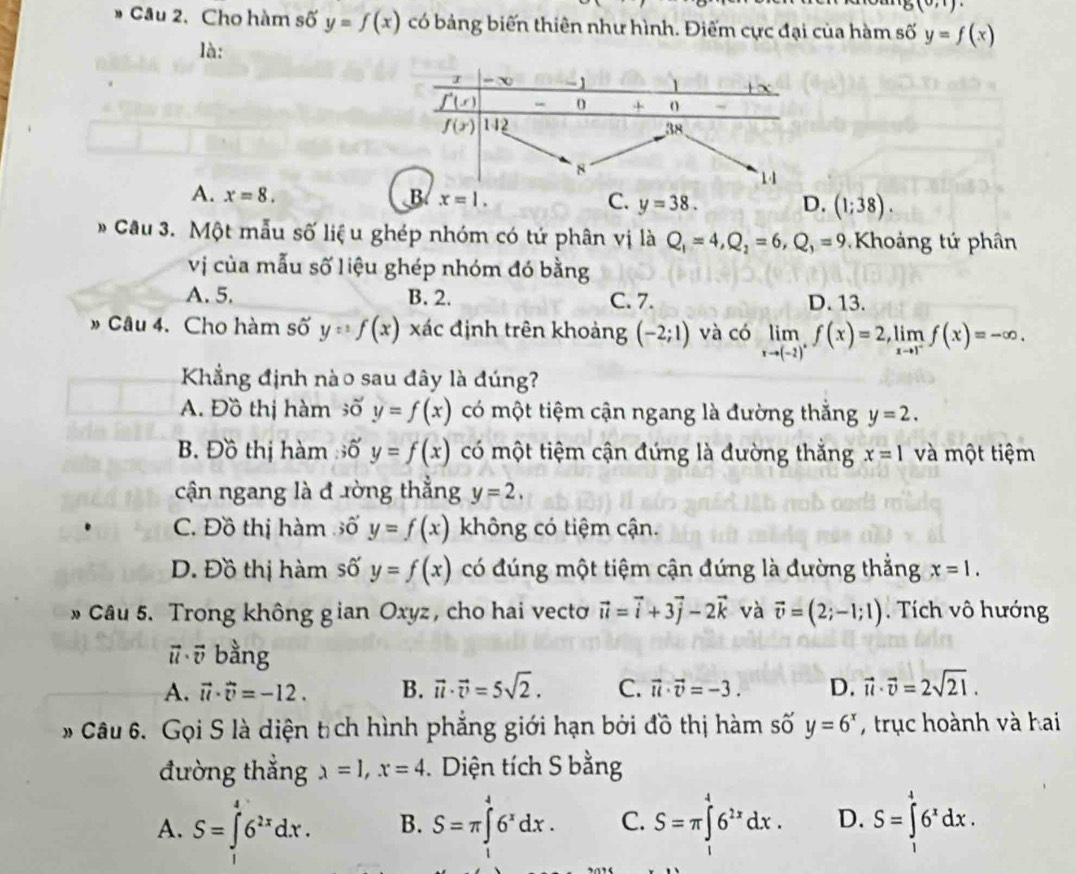 » Câu 2. Cho hàm số y = f(x) có bảng biến thiên như hình. Điểm cực đại của hàm số y = f(x)
là:
x | −∞ −1 1 +∞
f'(x) | − 0 + 0 −
f(x) | 142 8 38 14
A. x = 8. B. x = 1. C. y = 38. D. (1;38).
» Câu 3. Một mẫu số liệu ghép nhóm có tứ phân vị là Q₁ = 4, Q₂ = 6, Q₃ = 9. Khoảng tứ phân
vị của mẫu số liệu ghép nhóm đó bằng
A. 5. B. 2. C. 7. D. 13.
» Câu 4. Cho hàm số y = f(x) xác định trên khoảng (−2;1) và có lim_{x→(−2)⁺} f(x) = 2, lim_{x→1⁻} f(x) = −∞.
Khẳng định nào sau đây là đúng?
A. Đồ thị hàm số y = f(x) có một tiệm cận ngang là đường thẳng y = 2.
B. Đồ thị hàm số y = f(x) có một tiệm cận đứng là đường thẳng x = 1 và một tiệm
cận ngang là đường thẳng y = 2.
C. Đồ thị hàm số y = f(x) không có tiệm cận.
D. Đồ thị hàm số y = f(x) có đúng một tiệm cận đứng là đường thẳng x = 1.
» Câu 5. Trong không gian Oxyz, cho hai vectơ u⃗ = i⃗ + 3j⃗ − 2k⃗ và v⃗ = (2;−1;1). Tích vô hướng
u⃗ · v⃗ bằng
A. u⃗ · v⃗ = −12. B. u⃗ · v⃗ = 5√2. C. u⃗ · v⃗ = −3. D. u⃗ · v⃗ = 2√21.
» Câu 6. Gọi S là diện tích hình phẳng giới hạn bởi đồ thị hàm số y = 6ˣ, trục hoành và hai
đường thẳng x = 1, x = 4. Diện tích S bằng
A. S = ∫₁⁴ 6²ˣ dx. B. S = π∫₁⁴ 6ˣ dx. C. S = π∫₁⁴ 6²ˣ dx. D. S = ∫₁⁴ 6ˣ dx.